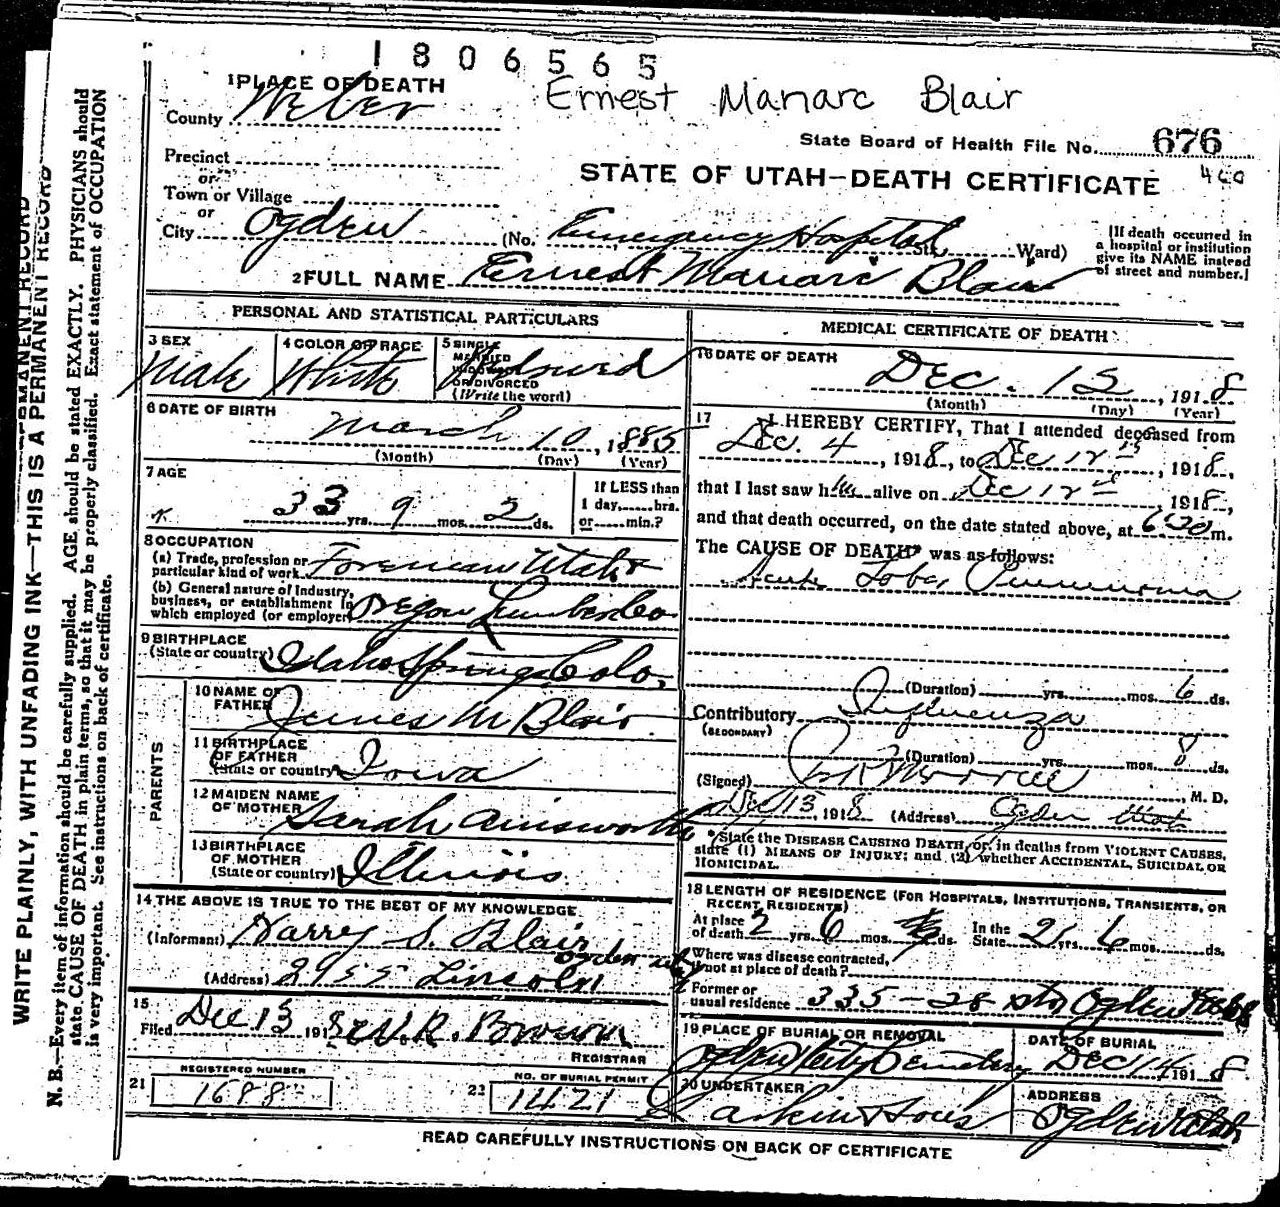 1806565
Ernest Manarc Blair
1 PLACE OF DEATH
County Weber
State Board of Health File No. 676
460
Precinct
or
Town or Village
or
City Ogden
STATE OF UTAH—DEATH CERTIFICATE
(No. Emergency Hospital St. Ward)
[If death occurred in
a hospital or institution
give its NAME instead
of street and number.]
2 FULL NAME Ernest Manarc Blair
PERSONAL AND STATISTICAL PARTICULARS
3 SEX
Male
4 COLOR OR RACE
White
5 SINGLE
MARRIED
WIDOWED
OR DIVORCED
(Write the word)
Widowed
6 DATE OF BIRTH
March 10, 1885
(Month) (Day) (Year)
7 AGE
33 yrs. 9 mos. 2 ds.
If LESS than
1 day, hrs.
or min.?
8 OCCUPATION
(a) Trade, profession or
particular kind of work Foreman Utah
(b) General nature of Industry,
business, or establishment in
which employed (or employer) Oregon Lumber Co
9 BIRTHPLACE
(State or country) Idaho Springs Colo.
PARENTS
10 NAME OF
FATHER James M Blair
11 BIRTHPLACE
OF FATHER
(State or country) Iowa
12 MAIDEN NAME
OF MOTHER Sarah Ainsworth
13 BIRTHPLACE
OF MOTHER
(State or country) Illinois
14 THE ABOVE IS TRUE TO THE BEST OF MY KNOWLEDGE
(Informant) Harry S. Blair
(Address) 2955 Lincoln Ogden
15
Filed Dec 13 1918
REGISTRAR
REGISTERED NUMBER
21 1688
NO. OF BURIAL PERMIT
22 1421
MEDICAL CERTIFICATE OF DEATH
16 DATE OF DEATH
Dec. 12, 1918
(Month) (Day) (Year)
17 I HEREBY CERTIFY, That I attended deceased from
Dec. 4, 1918, to Dec 12th, 1918,
that I last saw him alive on Dec 12th, 1918,
and that death occurred, on the date stated above, at 6:20 m.
The CAUSE OF DEATH* was as follows:
Acute Lobar Pneumonia
(Duration) yrs. mos. 6 ds.
Contributory Influenza
(SECONDARY)
(Duration) yrs. mos. 8 ds.
(Signed) Morrell, M. D.
Dec 13, 1918 (Address) Ogden Utah
*State the DISEASE CAUSING DEATH, or, in deaths from VIOLENT CAUSES,
state (1) MEANS OF INJURY; and (2) whether ACCIDENTAL, SUICIDAL OR
HOMICIDAL.
18 LENGTH OF RESIDENCE (FOR HOSPITALS, INSTITUTIONS, TRANSIENTS, OR
RECENT RESIDENTS)
At place
of death 2 yrs. 6 mos. ds. In the
State 2 yrs. 6 mos. ds.
Where was disease contracted,
if not at place of death?
Former or
usual residence 335 - 28 St Ogden Utah
19 PLACE OF BURIAL OR REMOVAL
Ogden City Cemetery
DATE OF BURIAL
Dec 14 1918
20 UNDERTAKER
Larkin & Sons
ADDRESS
Ogden Utah
READ CAREFULLY INSTRUCTIONS ON BACK OF CERTIFICATE
WRITE PLAINLY, WITH UNFADING INK—THIS IS A PERMANENT RECORD
N. B.—Every item of information should be carefully supplied. AGE should be stated EXACTLY. PHYSICIANS should
state CAUSE OF DEATH in plain terms, so that it may be properly classified. Exact statement of OCCUPATION
is very important. See instructions on back of certificate.